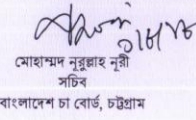 মোহাম্মদ নূরুল্লাহ নূরী
সচিব
বাংলাদেশ চা বোর্ড, চট্টগ্রাম